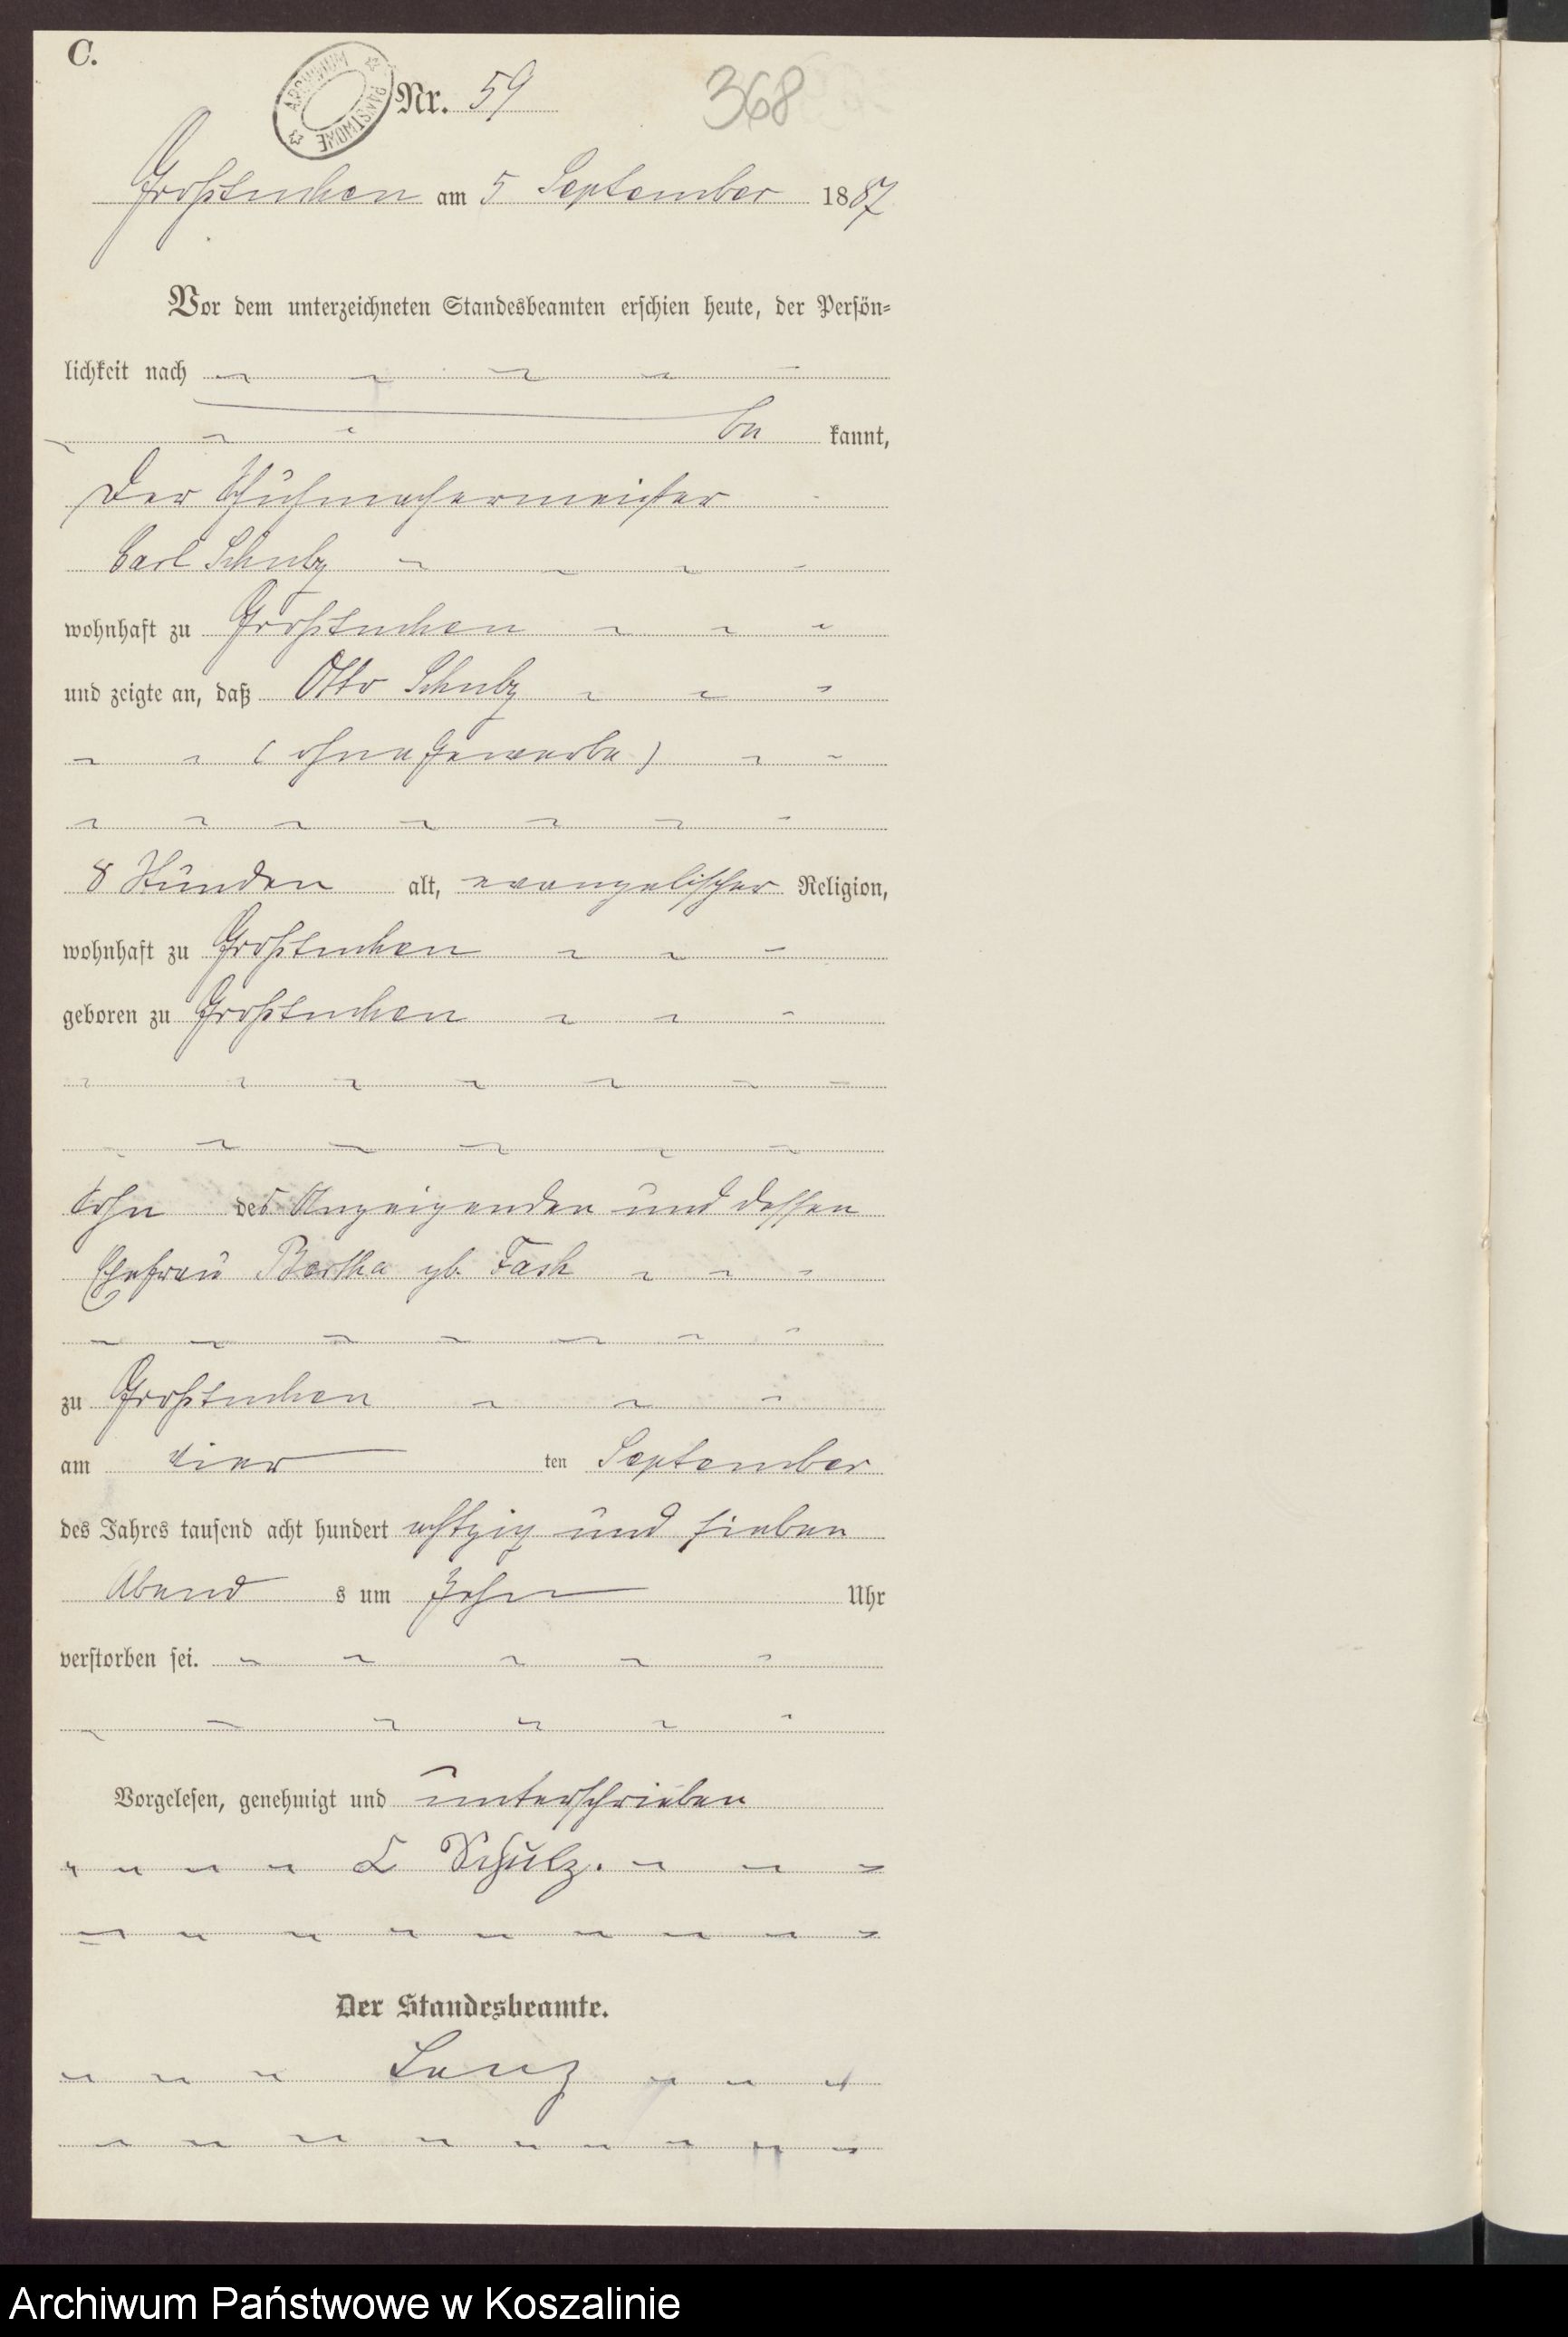 C.
ARCHIWUM PAŃSTWOWE
Nr. 59
368
Großtuchen am 5 September 1887
Vor dem unterzeichneten Standesbeamten erschien heute, der Persön-
lichkeit nach
be kannt,
Der Schuhmachermeister
Carl Schulz
wohnhaft zu Großtuchen
und zeigte an, daß Otto Schulz
( ohne Gewerbe )
8 Stunden alt, evangelischer Religion,
wohnhaft zu Großtuchen
geboren zu Großtuchen
Sohn des Anzeigenden und dessen
Ehefrau Bertha gb.
zu Großtuchen
am vier ten September
des Jahres tausend acht hundert achtzig und sieben
Abend s um Zehn Uhr
verstorben sei.
Vorgelesen, genehmigt und unterschrieben
Schulz.
Der Standesbeamte.
Archiwum Państwowe w Koszalinie